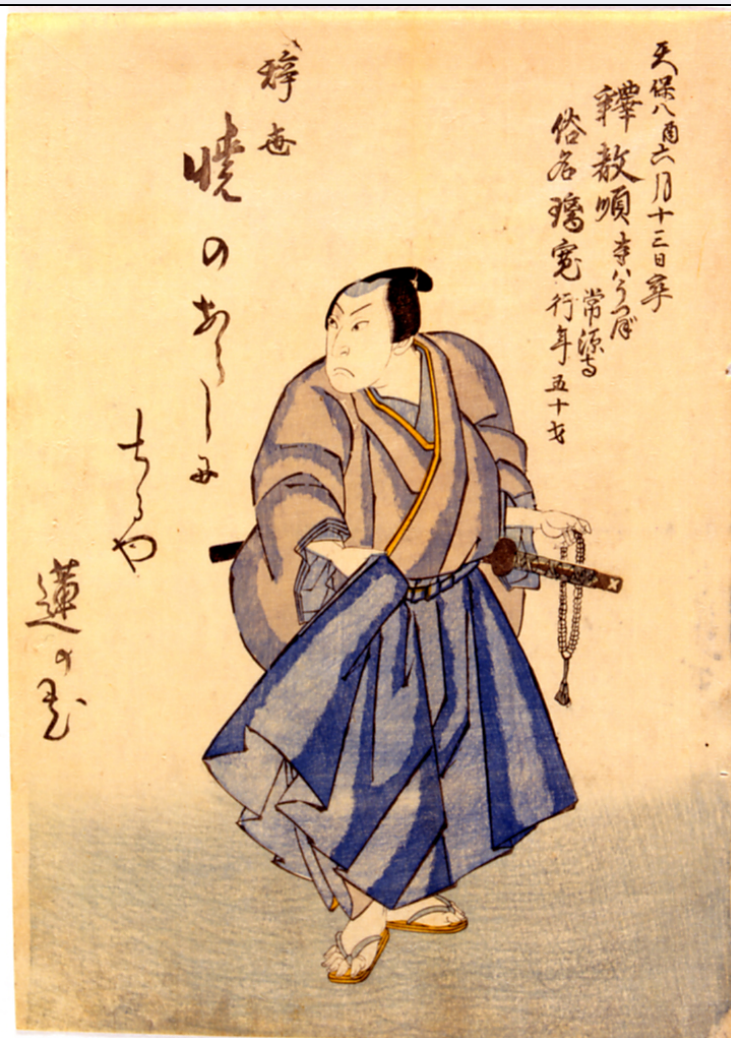 天保八酉六月十三日卒
釋教順 寺ハうつぼ
常源寺
俗名璃寛 行年五十才
辞世
暁のあらしに
ちるや
蓮の花